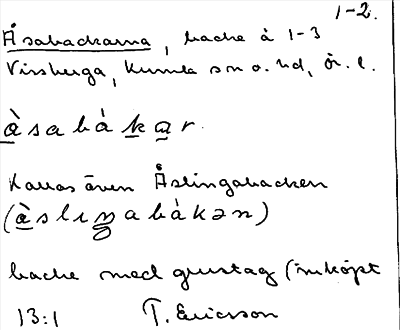 1-2.
Åsabackarna, backe å 1-3
Vissberga, Kumla sn o. hd, Ör. l.
àsabàkar.
Kallas även Åslingabacken
(àslıŋabàkən)
backe med grustag (inköpt
13:1 T. Ericson